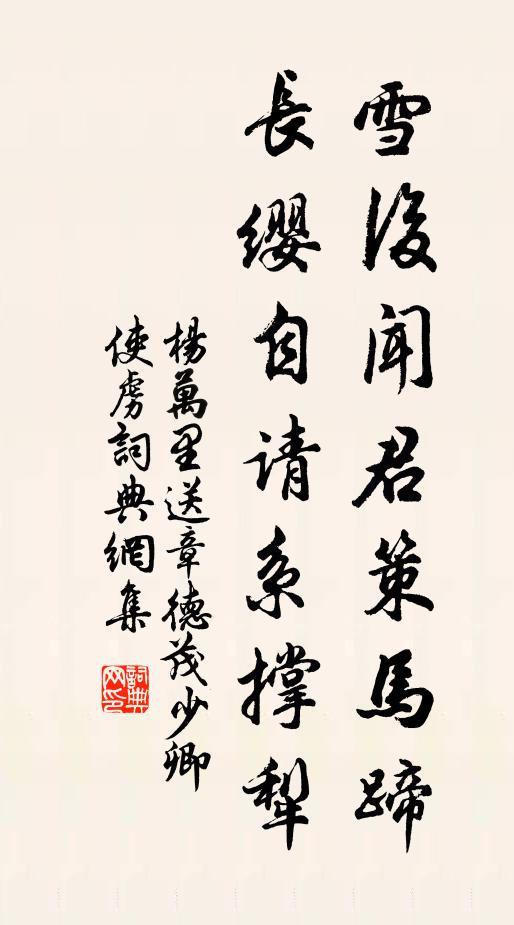 雪後闻君策馬蹄
長纓自请系撑犁
楊萬里送章德茂少卿
使虜詞典網集
詞典
网印